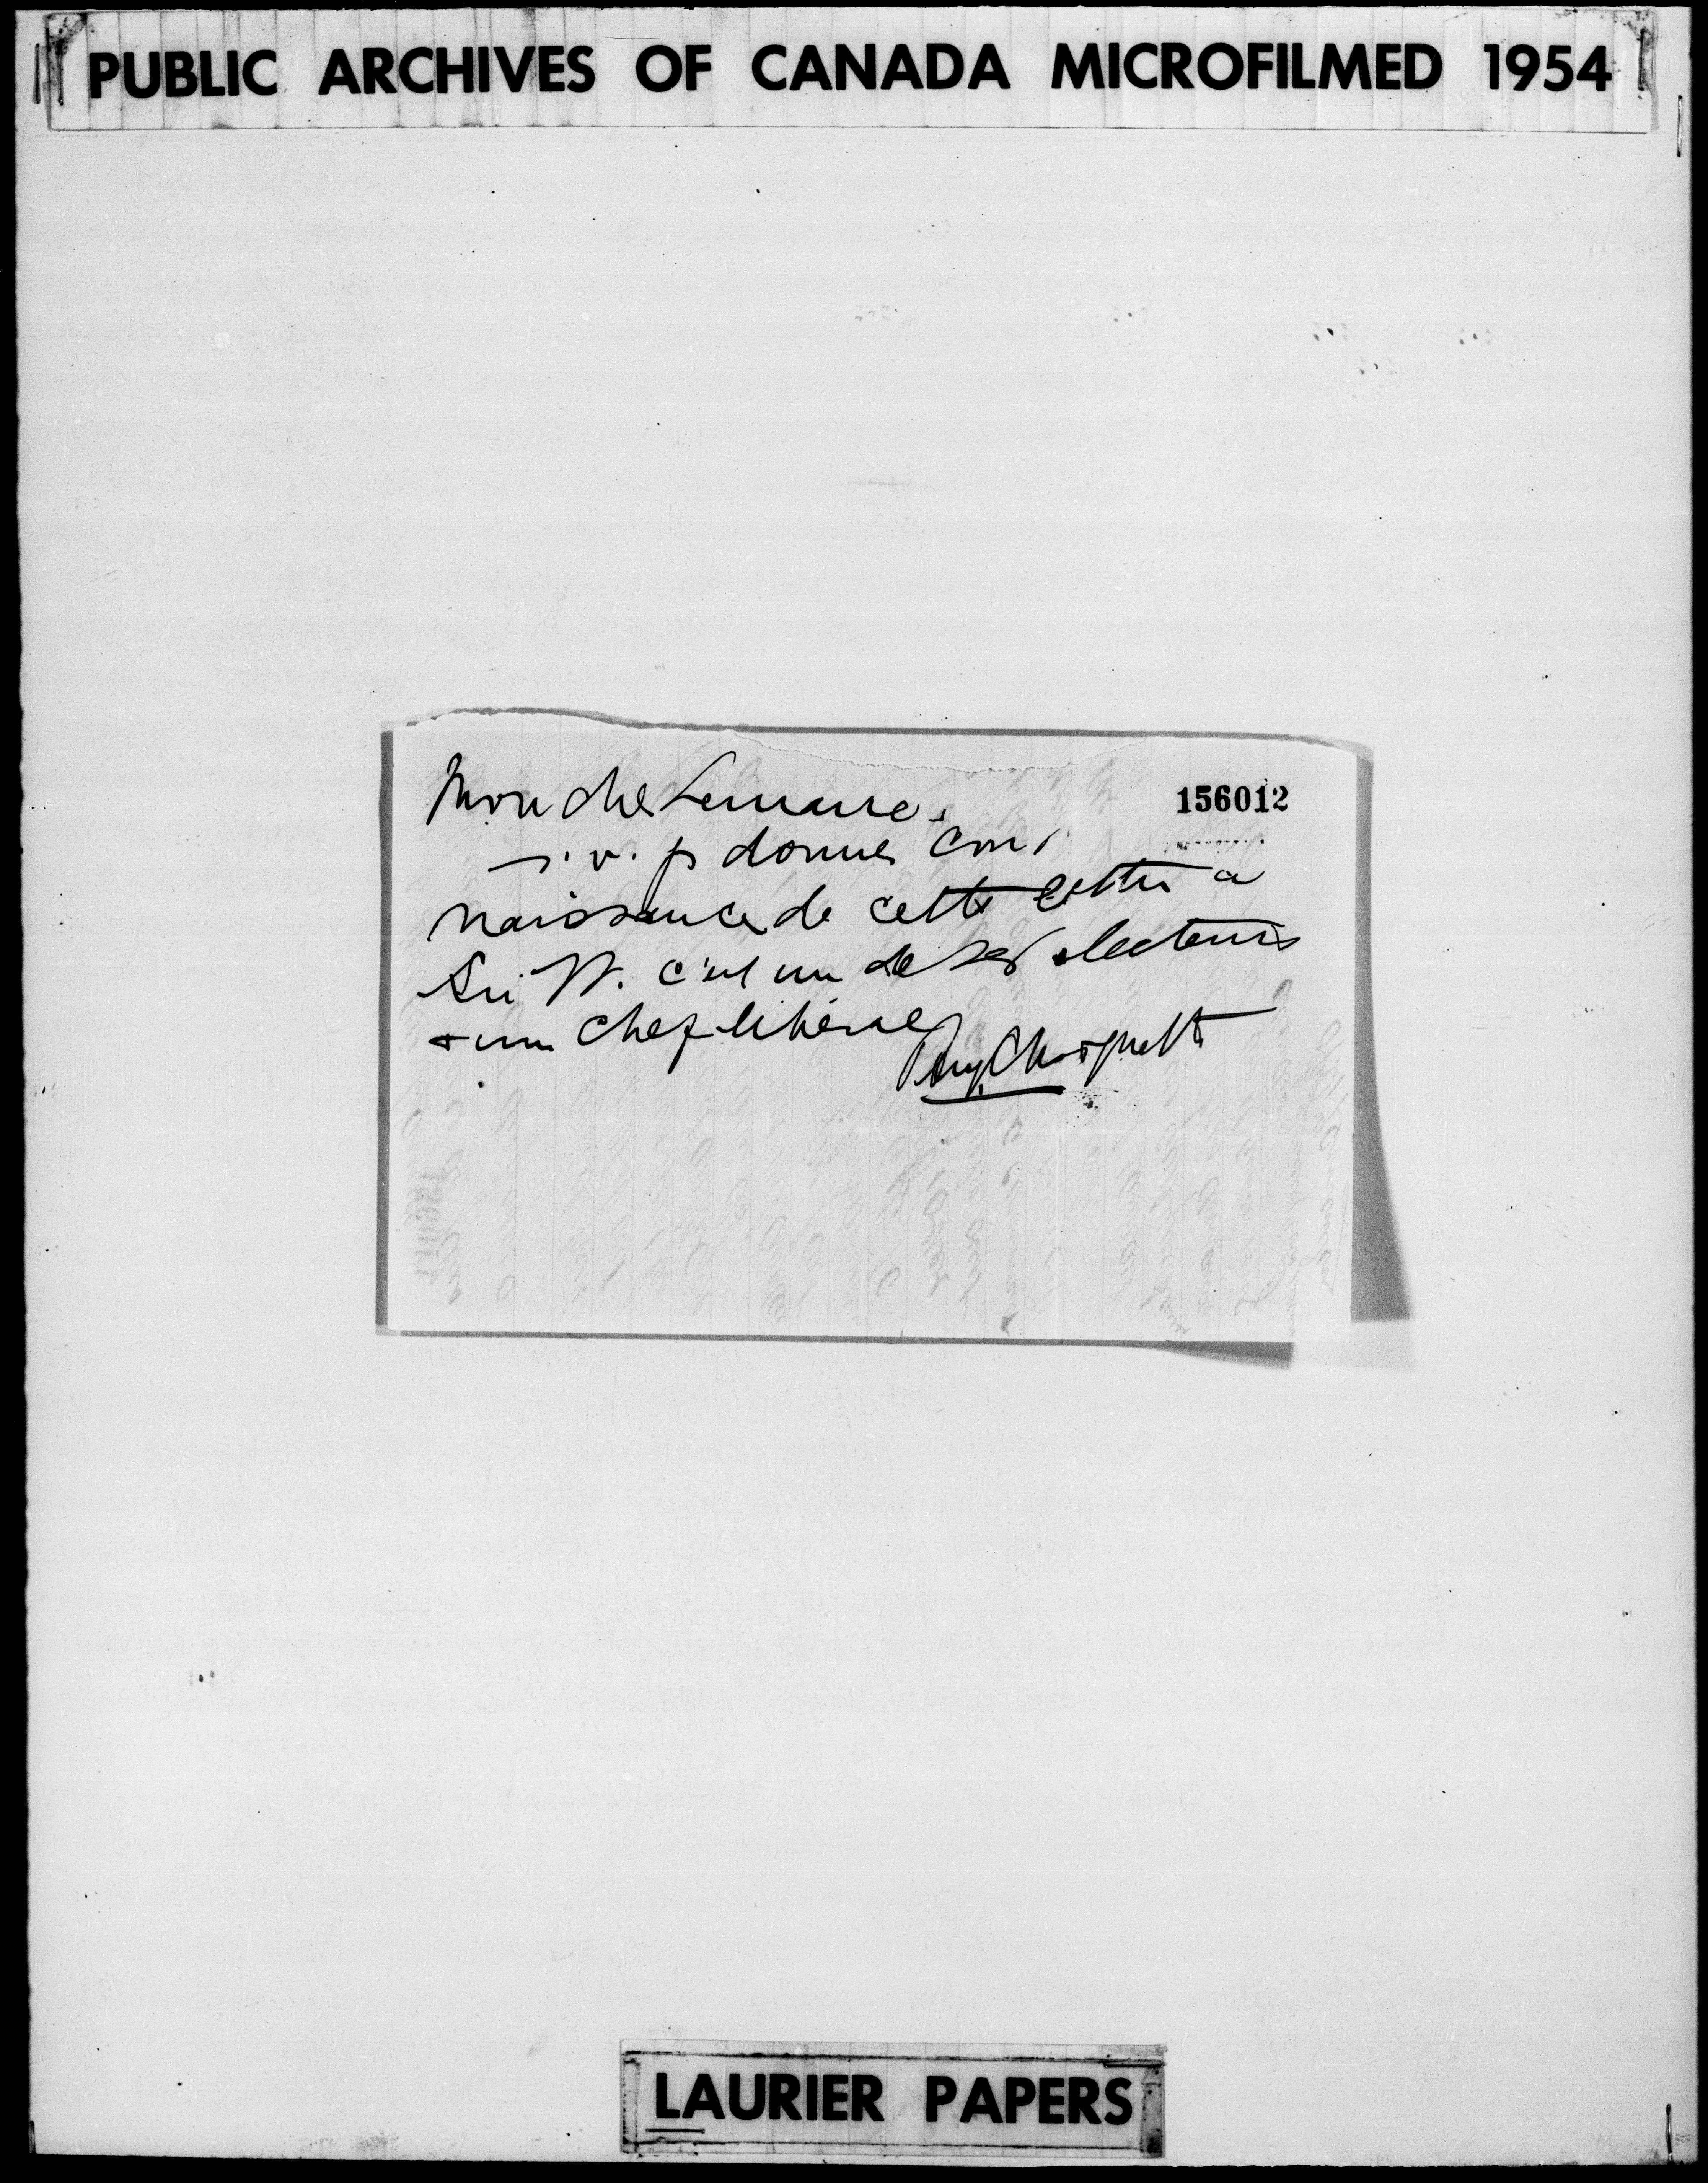 PUBLIC ARCHIVES OF CANADA MICROFILMED 1954
Mon cher Lemaire,
156012
s. v. p donner con-
naissance de cette lettre a
Sir W. c'est un de ses electeurs
+ un chef libéral
Choquette
LAURIER PAPERS